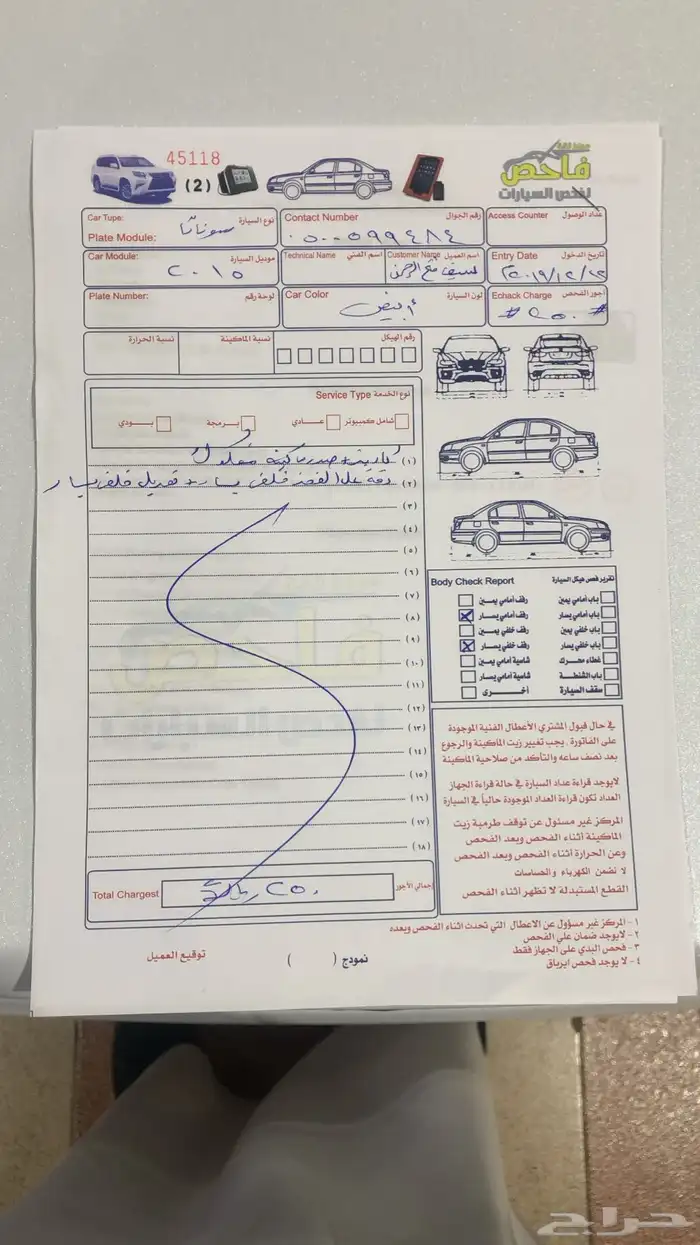 45118
(2)
فاحص
لفحص السيارات
Car Type: نوع السيارة
Plate Module: سوناتا
Contact Number رقم الجوال
Access Counter عداد الوصول
Car Module: موديل السيارة
٢٠١٥
Technical Name اسم الفني
Customer Name اسم العميل
Entry Date تاريخ الدخول
Plate Number: لوحة رقم
Car Color لون السيارة
أبيض
Echack Charge أجور الفحص
# ٢٥٠ #
نسبة الحرارة
نسبة الماكينة
رقم الهيكل
Service Type نوع الخدمة
شامل كمبيوتر
عـــادي
بـرمجة
بـــودي
(١)
(٢)
(٣)
(٤)
(٥)
(٦)
(٧)
(٨)
(٩)
(١٠)
(١١)
(١٢)
(١٣)
(١٤)
(١٥)
(١٦)
(١٧)
(١٨)
Total Chargest ٢٥٠ إجمالي الأجور
Body Check Report تقرير فحص هيكل السيارة
باب أمامي يمين رفف أمامي يمين
باب أمامي يسار رفف أمامي يسار
باب خلفي يمين رفف خلفي يمين
باب خلفي يسار رفف خلفي يسار
غطاء محرك شاصية أمامي يمين
باب الشنطة شاصية أمامي يسار
سقف السيارة أخرى
في حال قبول المشتري الأعطال الفنية الموجودة
على الفاتورة . يجب تغيير زيت الماكينة والرجوع
بعد نصف ساعه والتأكد من صلاحية الماكينة
لايوجد قراءة عداد السيارة في حالة قراءة الجهاز
العداد تكون قراءة العداد الموجودة حالياً في السيارة
المركز غير مسئول عن توقف طرمبة زيت
الماكينة أثناء الفحص وبعد الفحص
وعن الحرارة أثناء الفحص وبعد الفحص
لا نضمن الكهرباء والحساسات
القطع المستبدلة لا تظهر اثناء الفحص
١ - المركز غير مسؤول عن الاعطال التي تحدث اثناء الفحص وبعده
٢ - لايوجد ضمان علي الفحص
٣ - فحص البدي على الجهاز فقط
٤ - لا يوجد فحص ايرباق
نموذج ( )
توقيع العميل
حراج